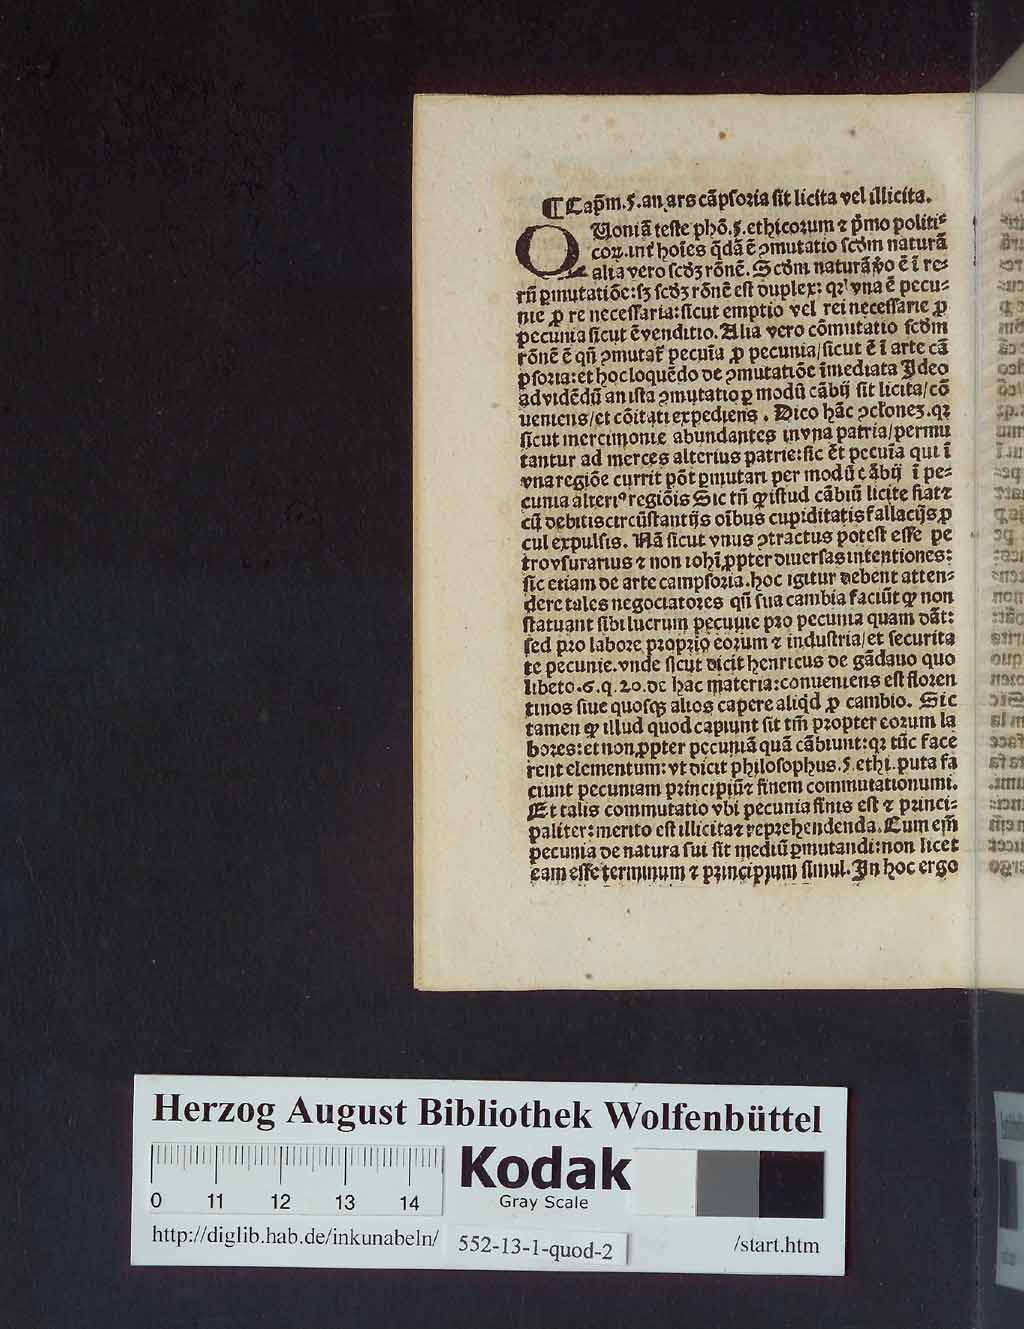 ¶ Capm̄.5.an ars cāpsoria sit licita vel illicita.
QUoniā teste phō.5.ethicorum ⁊ pͥmo politi⸗
coꝝ.int̉ hoīes q̄dā ē ꝯmutatio scd̄m naturā
alia vero scd̄ꝫ rōnē. Scd̄m naturā v̄o ē ī re⸗
rū ꝑmutatiōe: sꝫ scd̄ꝫ rōnē est duplex: qꝛ vna ē pecu⸗
nie ꝓ re necessaria: sicut emptio vel rei necessarie ꝓ
pecunia sicut ē venditio. Alia vero cōmutatio scd̄m
rōnē ē qn̄ ꝯmutat̉ pecuīa ꝓ pecunia/sicut ē ī arte cā
psoria: et hoc loquēdo de ꝯmutatiōe īmediata Ideo
ad vidēdū an ista ꝯmutatio ꝑ modū cābij sit licita/cō
ueniens/et cōitati expediens. Dico hāc ꝯcloneꝫ.qꝛ
sicut mercimonie abundantes in vna patria/permu
tantur ad merces alterius patrie: sic et pecuīa qui ī
vna regiōe currit pōt ꝑmutari per modū cābij ī pe⸗
cunia alteriꝰ regiōis Sic tn̄ ꝙ istud cābiū licite fiat ⁊
cū debitis circūstantijs oībus cupiditatis fallacijs ꝓ
cul expulsis. Nā sicut vnus ꝯtractus potest esse pe
tro vsurarius ⁊ non iohī ꝓpter diuersas intentiones:
sic etiam de arte campsoria. hoc igitur debent atten⸗
dere tales negociatores qn̄ sua cambia faciūt ꝙ non
statuant sibi lucrum pecunie pro pecunia quam dāt:
sed pro labore proprio eorum ⁊ industria/et securita
te pecunie. vnde sicut dicit henricus de gādauo quo
libeto.6.q.20.de hac materia: conueniens est floren
tinos siue quosqꝫ alios capere aliqd̄ ꝓ cambio. Sic
tamen ꝙ illud quod capiunt sit tm̄ propter eorum la
bores: et non ꝓpter pecuniā quā cābiunt: qꝛ tūc face
rent elementum: vt dicit philosophus.5.ethi.puta fa
ciunt pecuniam principiū ⁊ finem commutationumi.
Et talis commutatio vbi pecunia finis est ⁊ princi⸗
paliter: merito est illicita ⁊ reprehendenda. Cum em̄
pecunia de natura sui sit mediū ꝑmutandi: non licet
eam esse terminum ⁊ principium simul. In hoc ergo
Herzog August Bibliothek Wolfenbüttel
0 11 12 13 14
Kodak
Gray Scale
http://diglib.hab.de/inkunabeln/ 552-13-1-quod-2 /start.htm